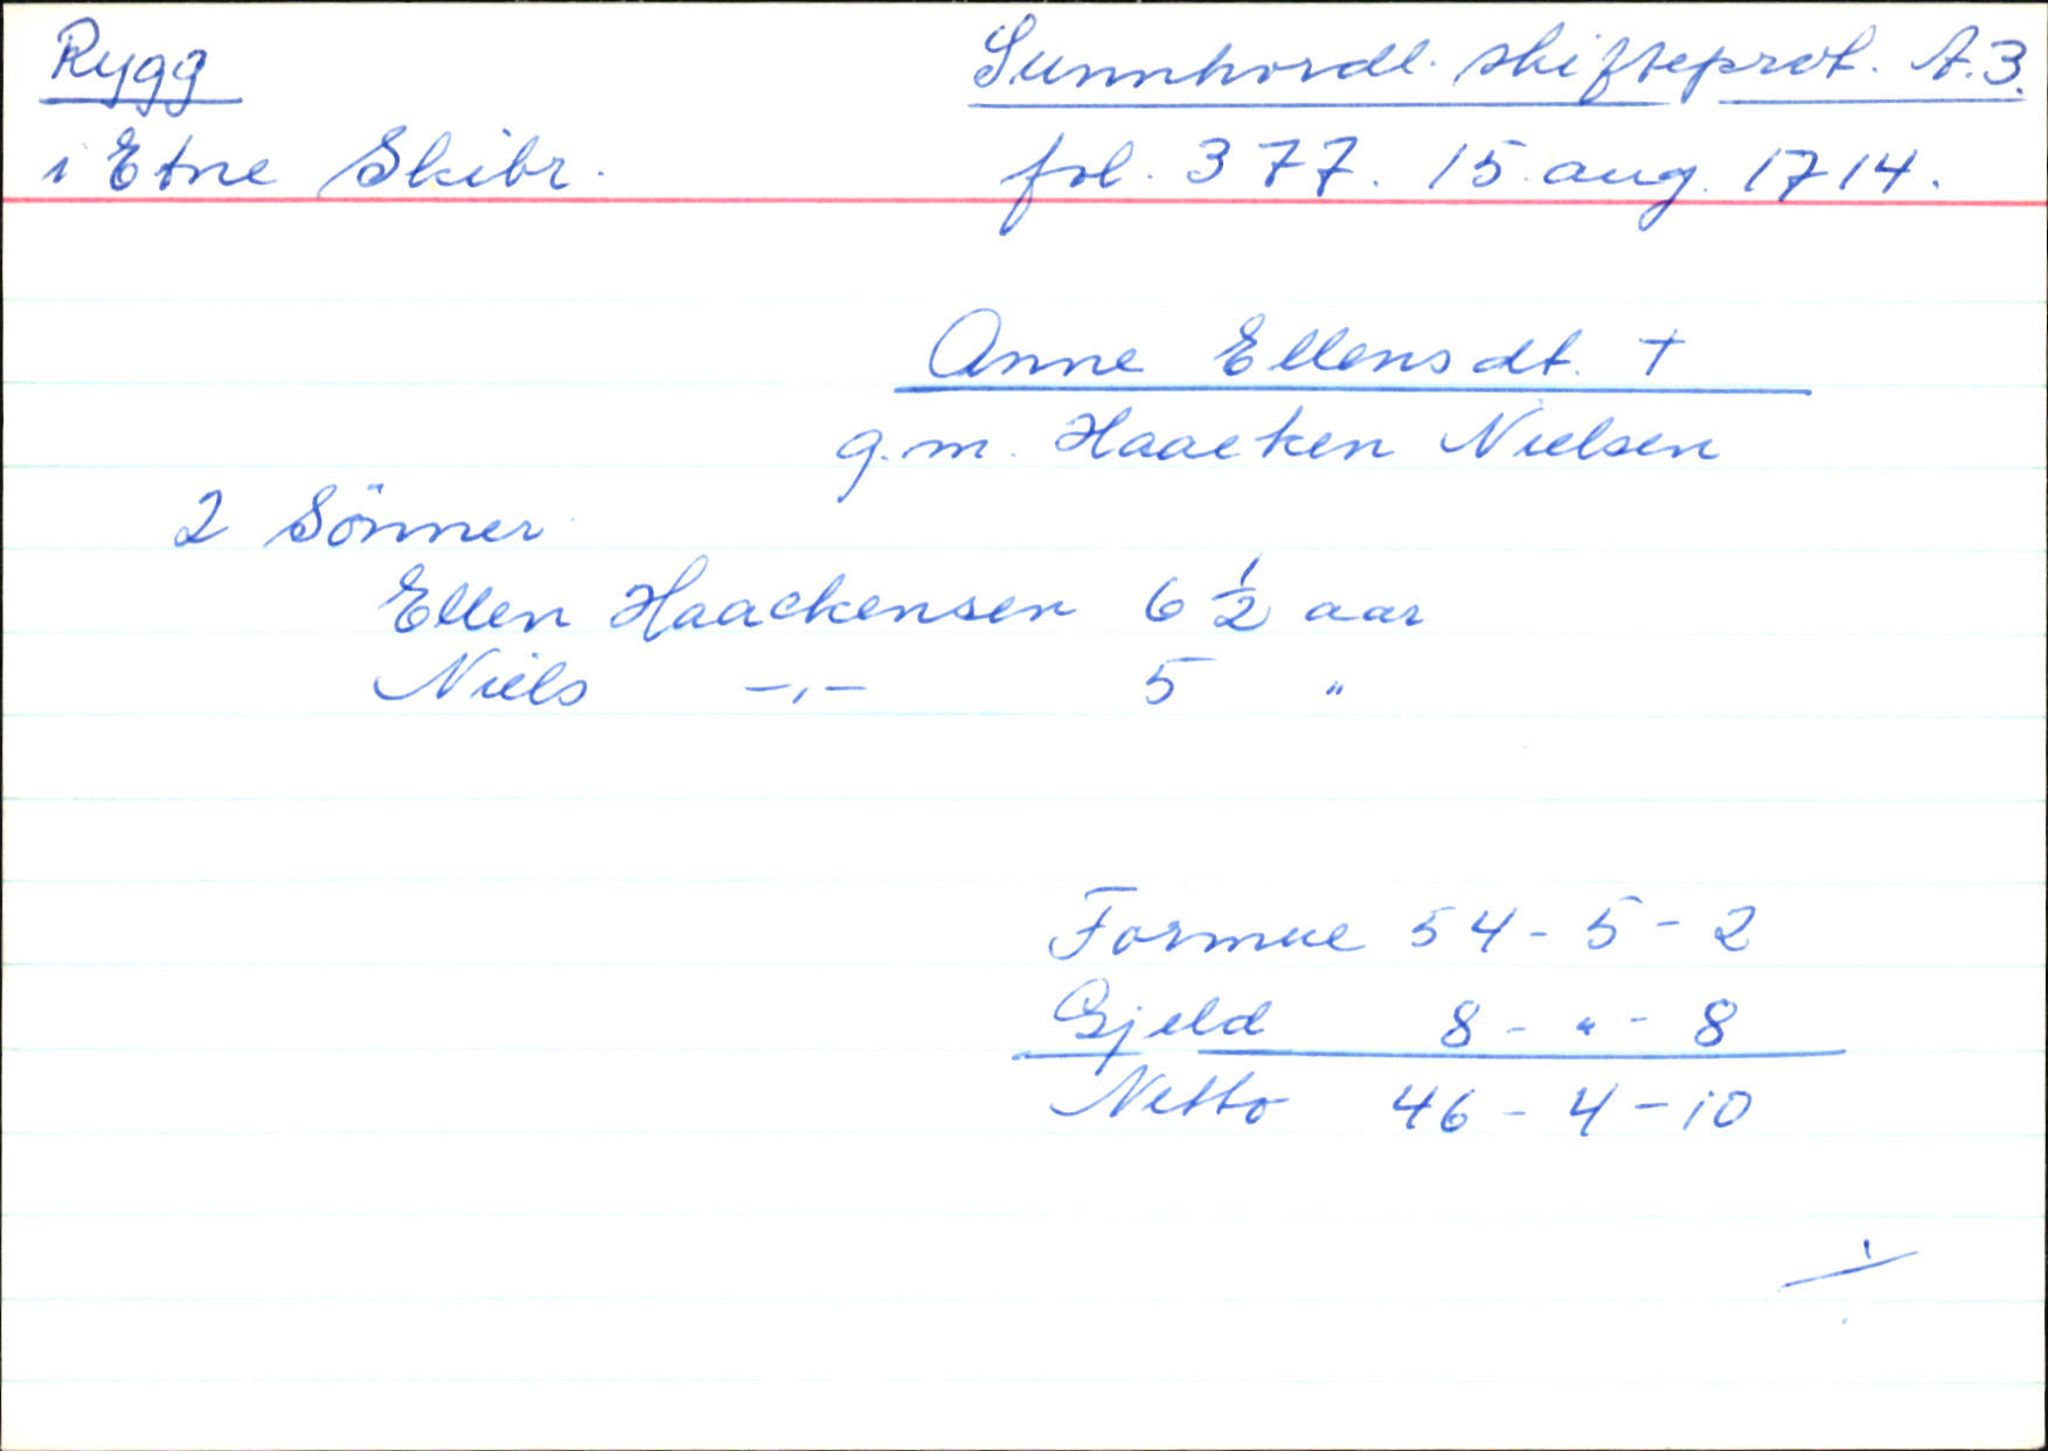 Rygg
i Etne Skibr.
Sunnhordl. skifteprot. A.3.
fol. 377. 15. aug. 1714.
Anne Ellensdt. +
g.m. Haacken Nielsen
2 Sönner
Ellen Haackensen 6 ½ aar
Niels -,- 5 "
Formue 54 - 5 - 2
Gjeld 8 - " - 8
Netto 46 - 4 - 10